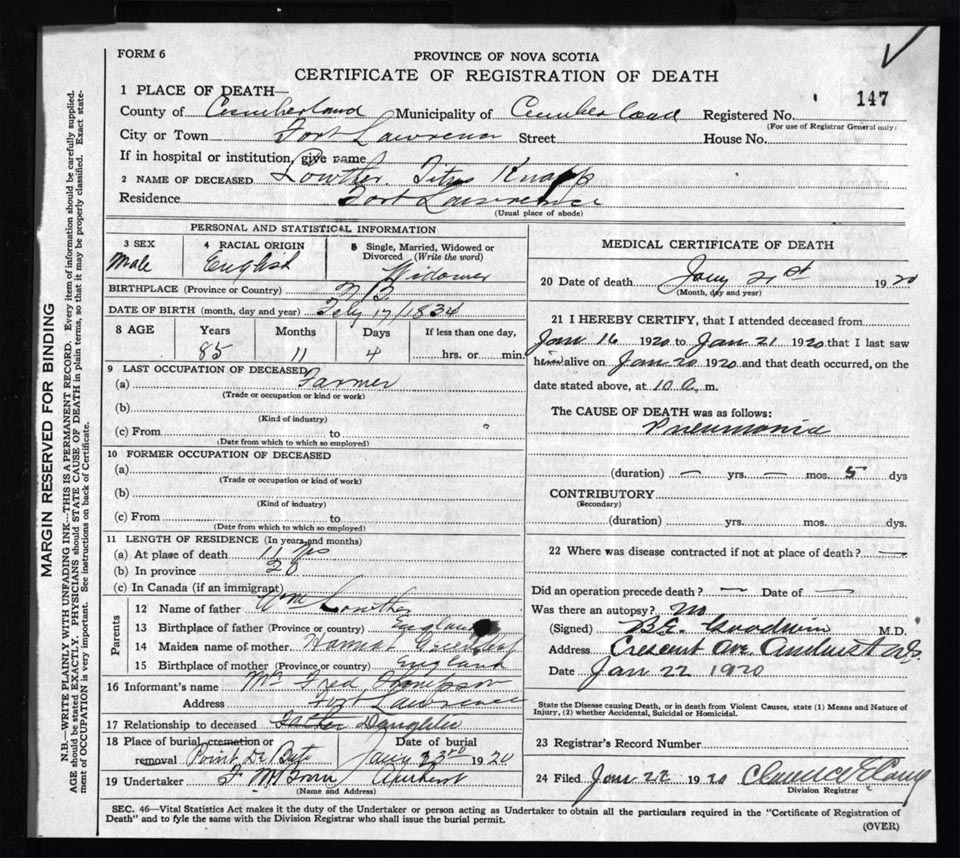 FORM 6
PROVINCE OF NOVA SCOTIA
CERTIFICATE OF REGISTRATION OF DEATH
147
1 PLACE OF DEATH—
County of Cumberland Municipality of Cumberland Registered No.
(For use of Registrar General only)
City or Town Fort Lawrence Street House No.
If in hospital or institution, give name
2 NAME OF DECEASED Lowther, Titus Knapp
Residence Fort Lawrence
(Usual place of abode)
PERSONAL AND STATISTICAL INFORMATION
3 SEX 4 RACIAL ORIGIN 5 Single, Married, Widowed or Divorced (Write the word)
Male English Widower
BIRTHPLACE (Province or Country) N B
DATE OF BIRTH (month, day and year) Feby 17/1834
8 AGE Years Months Days If less than one day,
85 11 4 hrs. or min.
9 LAST OCCUPATION OF DECEASED
(a) Farmer
(Trade or occupation or kind or work)
(b)
(Kind of industry)
(c) From to
(Date from which to which so employed)
10 FORMER OCCUPATION OF DECEASED
(a)
(Trade or occupation or kind of work)
(b)
(Kind of industry)
(c) From to
(Date from which to which so employed)
11 LENGTH OF RESIDENCE (In years and months)
(a) At place of death 11 yrs
(b) In province 20
(c) In Canada (if an immigrant)
Parents
12 Name of father Wm Lowther
13 Birthplace of father (Province or country) England
14 Maiden name of mother
15 Birthplace of mother (Province or country) England
16 Informant's name Mrs Fred Thompson
Address Fort Lawrence
17 Relationship to deceased Father Daughter
18 Place of burial, cremation or removal Point De Bute Date of burial Jany 23rd 1920
19 Undertaker Amherst
(Name and Address)
MEDICAL CERTIFICATE OF DEATH
20 Date of death Jany 21st 1920
(Month, day and year)
21 I HEREBY CERTIFY, that I attended deceased from
Jan 16 1920 to Jan 21 1920 that I last saw
him alive on Jan 20 1920 and that death occurred, on the
date stated above, at 10 a. m.
The CAUSE OF DEATH was as follows:
Pneumonia
(duration) — yrs. — mos. 5 dys
CONTRIBUTORY
(Secondary)
(duration) yrs. mos. dys.
22 Where was disease contracted if not at place of death? —
Did an operation precede death? — Date of —
Was there an autopsy? No
(Signed) B.E. Goodwin M.D.
Address Crescent Ave Amherst N.S.
Date Jan 22 1920
State the Disease causing Death, or in death from Violent Causes, state (1) Means and Nature of
Injury, (2) whether Accidental, Suicidal or Homicidal.
23 Registrar's Record Number
24 Filed Jan 22 1920 Clarence
Division Registrar
SEC. 46—Vital Statistics Act makes it the duty of the Undertaker or person acting as Undertaker to obtain all the particulars required in the "Certificate of Registration of
Death" and to fyle the same with the Division Registrar who shall issue the burial permit.
(OVER)
MARGIN RESERVED FOR BINDING
N.B.—WRITE PLAINLY WITH UNFADING INK—THIS IS A PERMANENT RECORD. Every item of information should be carefully supplied.
AGE should be stated EXACTLY. PHYSICIANS should STATE CAUSE OF DEATH in plain terms, so that it may be properly classified. Exact state-
ment of OCCUPATION is very important. See instructions on back of Certificate.